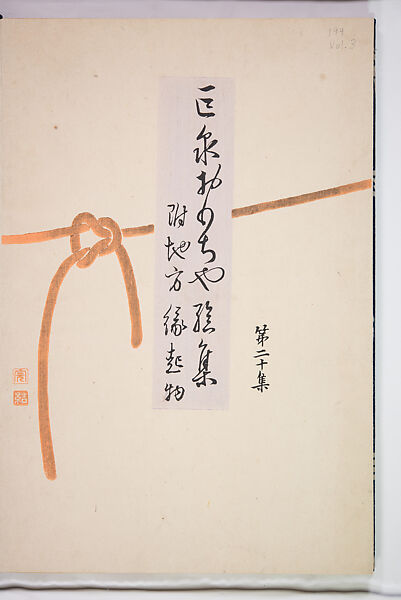 巨泉おもちや絵集
附地方縁起物
第二十集
194
Vol. 3